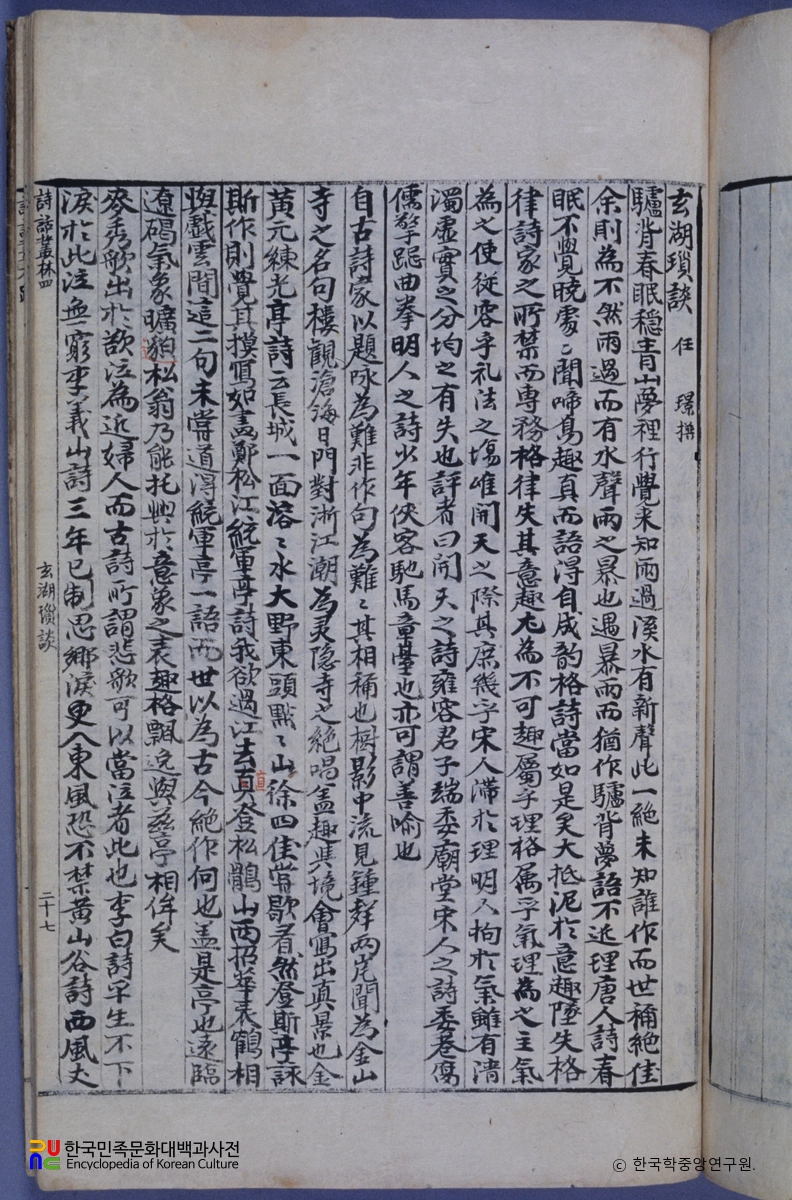 玄湖瑣談 任 璟 撰
驢背春眠穩青山夢裡行覺來知雨過溪水有新聲此一絶未知誰作而世稱絶佳
余則爲不然雨過而有水聲雨之暴也遇暴雨而猶作驢背夢語不近理唐人詩春
眠不覺曉處〻聞啼鳥趣真而語淂自成韵格詩當如是矣大抵泥於意趣墜失格
律詩家之所禁而專務格律失其意趣尤爲不可趣屬乎理格属乎氣理爲之主氣
爲之使從容乎礼法之場唯開天之際其庶幾乎宋人滯於理明人拘於氣雖有清
濁虛實之分均之有失也評者曰開天之詩雍容君子端委廟堂宋人之詩委巷腐
儒擎跽曲拳明人之詩少年俠客馳馬章臺也亦可謂善喻也
自古詩家以題咏爲難非作句爲難〻其相稱也樹影中流見鍾聲兩岸聞爲金山
寺之名句樓觀滄海日門對浙江潮爲灵隐寺之絶唱盖趣與境會寫出真景也金
黃元練光亭詩云長城一面溶〻水大野東頭㸃〻山徐四佳嘗歇看然登斯亭詠
斯作則覺其摸寫如畵鄭松江統軍亭詩我欲過江去直登松鶻山西招華表鶴相
與戲雲間這二句未嘗道淂統軍亭一語而世以爲古今絶作何也盖是亭也遠臨
遼碣氣象曠豁松翁乃能托興於意象之表趣格飄逸與茲亭相侔矣
麥秀歌出於欲泣爲近婦人而古詩所謂悲歌可以當泣者此也李白詩平生不下
淚於此泣無窮李義山詩三年已制思鄉淚更入東風恐不禁黃山谷詩西風丈
詩話叢林四
玄湖瑣談
二十七
한국민족문화대백과사전
Encyclopedia of Korean Culture
ⓒ 한국학중앙연구원.